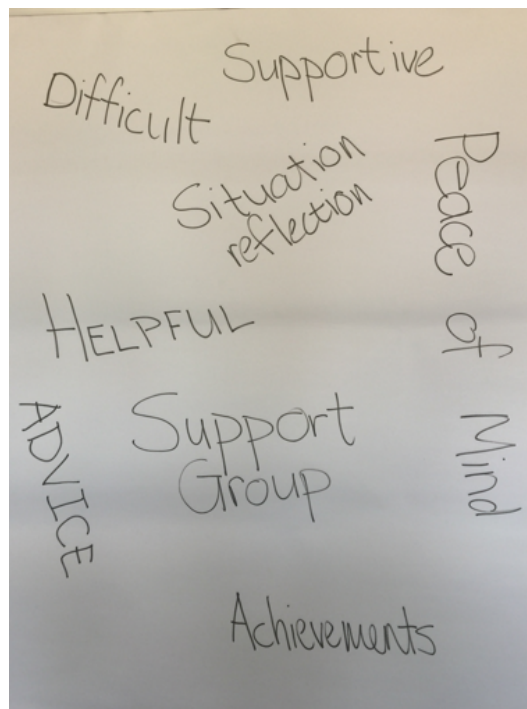 Supportive
Difficult
Situation
reflection
Peace of Mind
HELPFUL
ADVICE
Support
Group
Achievements